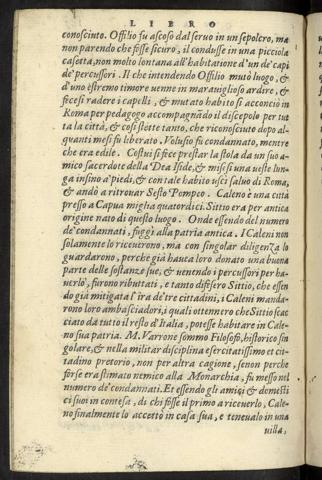 LIBRO
conosciuto. Offilio fu ascoso dal seruo in un sepolcro, ma
non parendo che fosse sicuro, il condusse in una picciola
casetta, non molto lontana all'habitatione d'un de' capi
de' percussori. Il che intendendo Offilio mutò luogo, &
d'uno estremo timore uenne in marauiglioso ardire, &
fecesi radere i capelli, & mutato habito si acconciò in
Roma per pedagogo accompagnãdo il discepolo per tut
ta la città, & così stette tanto, che riconosciuto dopo al-
quanti mesi fu liberato. Volusio fu condannato, mentre
che era edile. Costui si fece prestar la stola da un suo a-
mico sacerdote della Dea Iside, & misesi una ueste lun-
ga insino a' piedi, & con tale habito uscì saluo di Roma,
& andò a ritrouar Sesto Pompeo. Caleno è una città
presso a Capua miglia quatordici. Sittio era per antica
origine nato di questo luogo. Onde essendo del numero
de' condannati, fuggì alla patria antica. I Caleni non
solamente lo riceuerono, ma con singolar diligenza lo
guardarono, perche già haueua loro donato una buona
parte delle sostanze sue, & uenendo i percussori per ha-
uerlo, furono ributtati, e tanto difesero Sittio, che essen
do già mitigata l'ira de' tre cittadini, i Caleni manda-
rono loro ambasciadori, i quali ottennero che Sittio scac
ciato da tutto il resto d'Italia, potesse habitare in Cale-
no sua patria. M. Varrone sommo Filosofo, historico sin
golare, & nella militar disciplina esercitatissimo et cit-
tadino pretorio, non per altra cagione, se non perche
forse era stimato nemico alla Monarchia, fu messo nel
numero de' condennati. Et essendo gli amici & domesti
ci suoi in contesa, di chi fosse il primo a riceuerlo, Cale-
no finalmente lo accettò in casa sua, e teneualo in una
uilla,